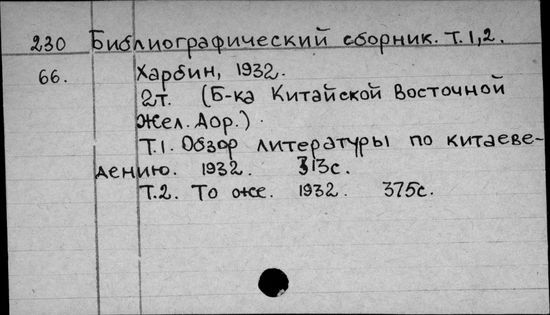 230 Библиографический сборник. Т. 1, 2.
66. Харбин, 1932.
2т. (Б-ка Китайской Восточной
Жел. Дор.).
Т.1. Обзор литературы по китаеве-
дению. 1932. 313с.
Т.2. То же. 1932. 375с.